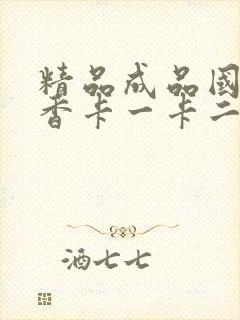 精品成品國
香卡一卡二
酒七七